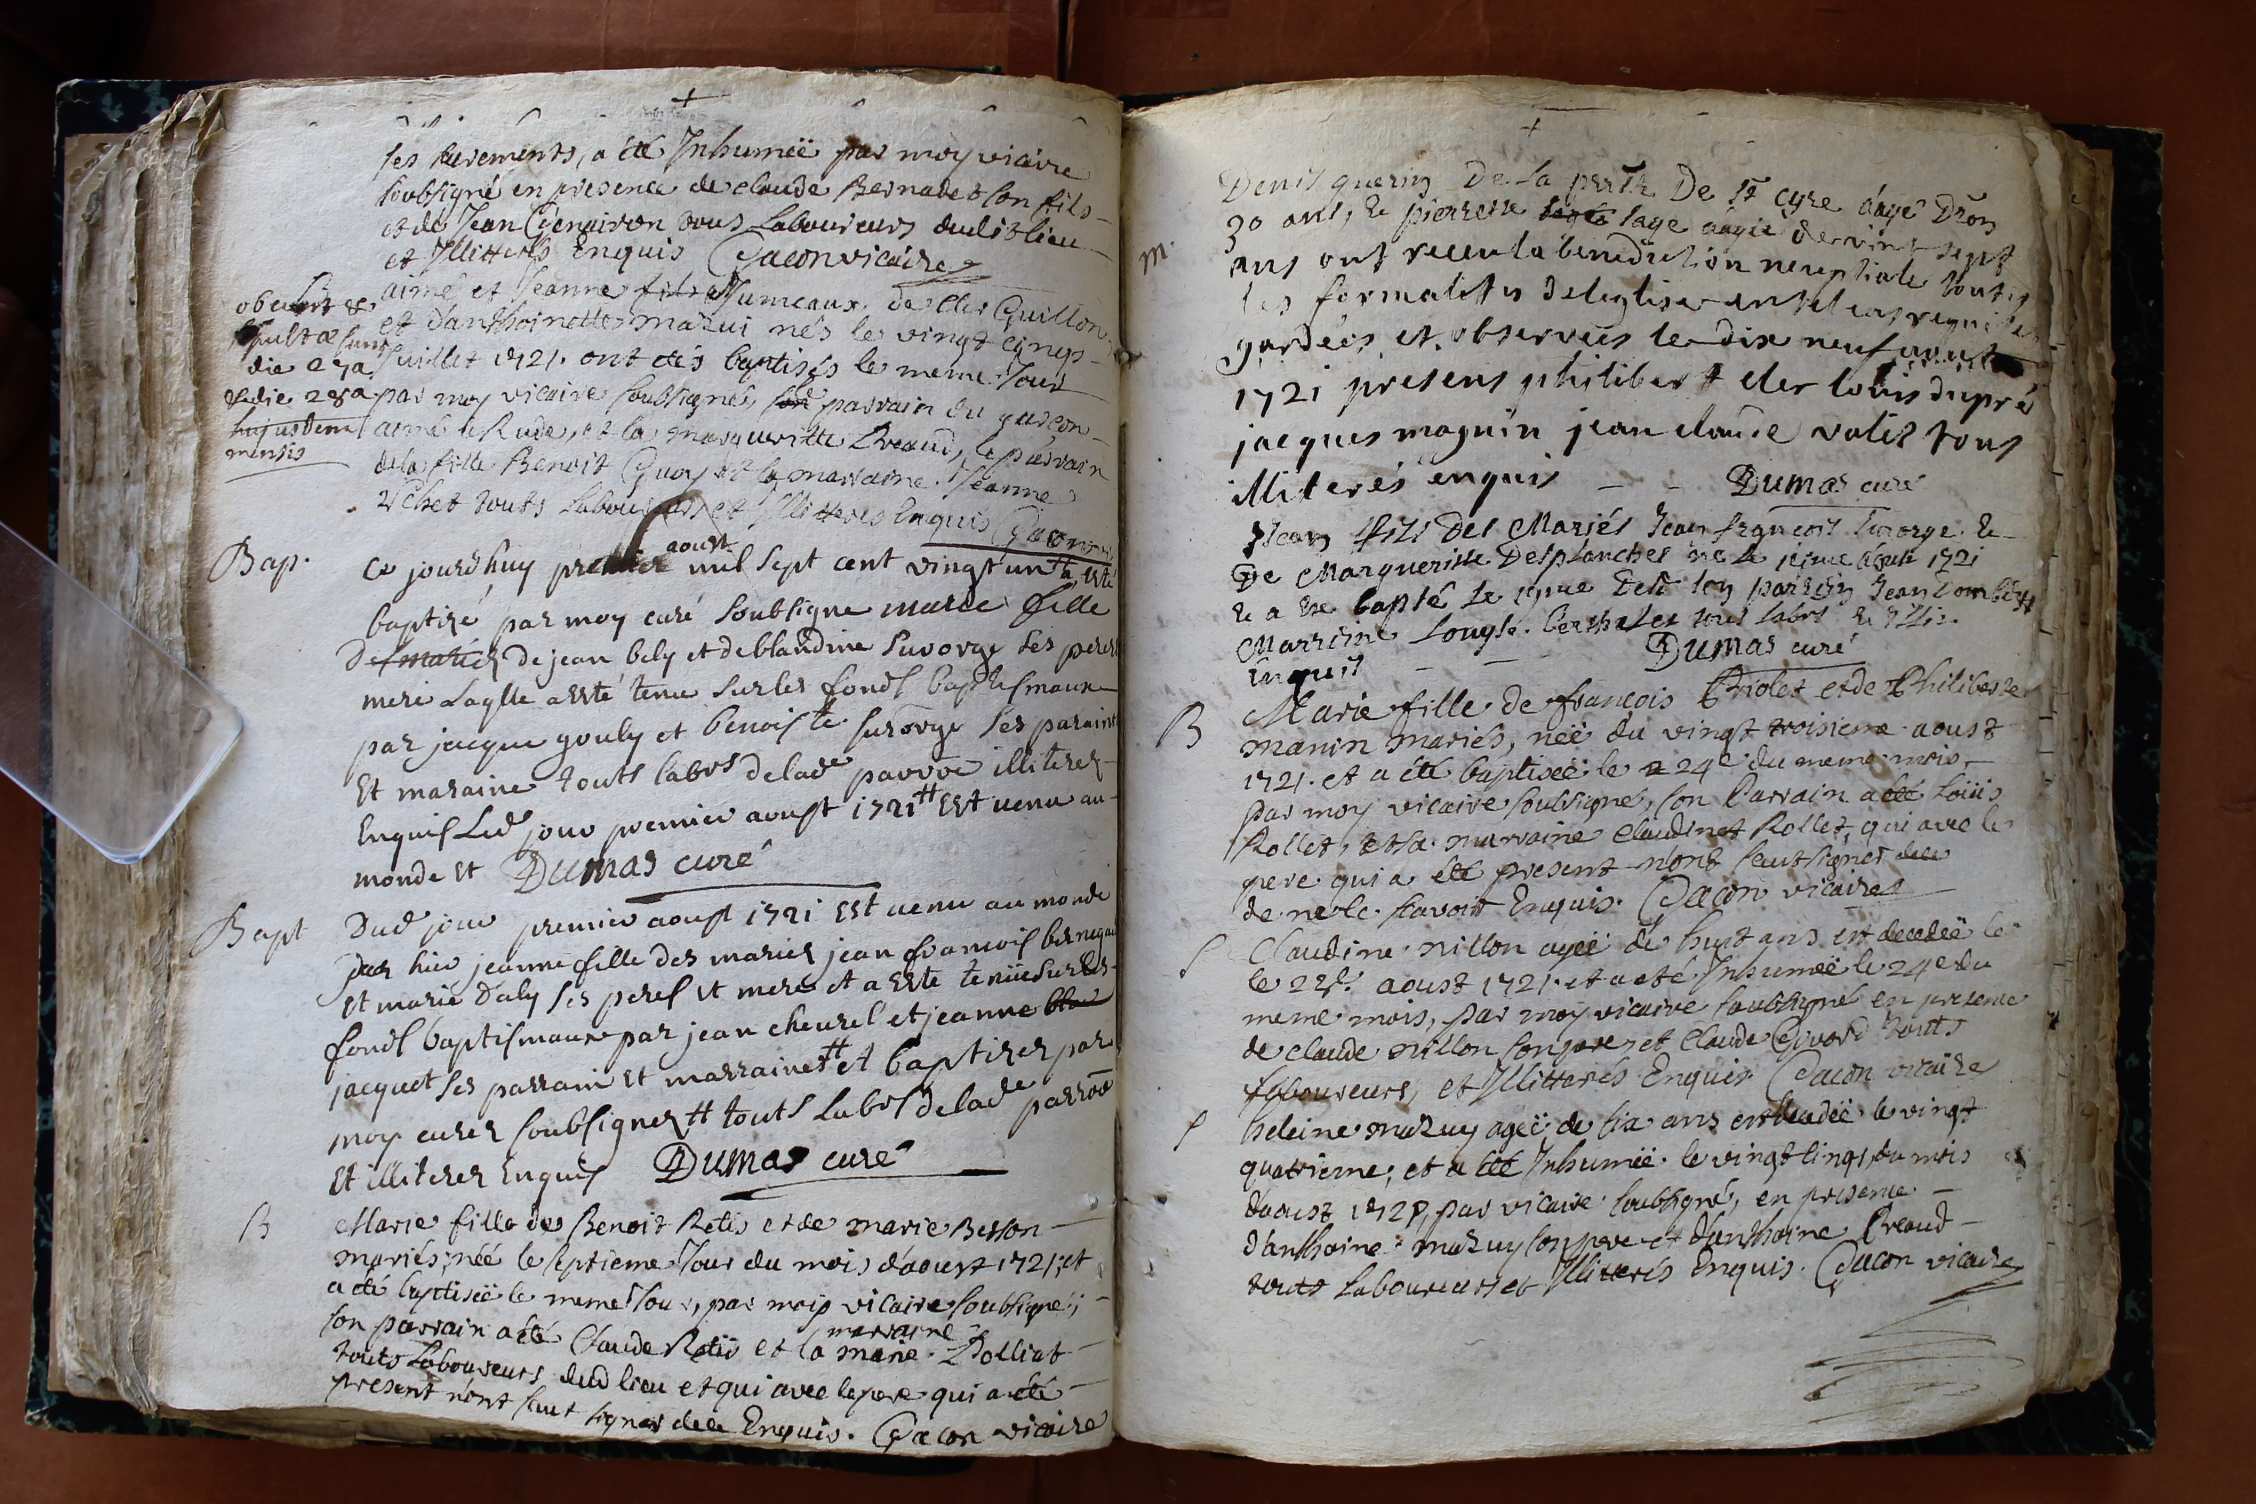 ses sacrements, a été Inhumeë par moy vicaire
soubsigné en presence de claude Bernade son fils
et de Jean tous Laboureurs dudit lieu
et Illitterés Enquis Gacon vicaire
aimé et Jeanne Jumeaux de cler Guillon
et d'anthoinette mazui nés le vingt cinqs
Juillet 1721. ont étés baptisés le meme Jour
par moy vicaire soubsigné, parrain du garcon
aimé Rude, et la margueritte Breaud, le parrain
de la fille Benoit Guoy et la marraine Jeanne
touts Laboureurs et Illitterés Enquis Gacon
obierunt &
sepultæ sunt
die 27a
& die 28a
hujus dem
mensis
Bap.
Ce jourd'huy premier aoust mil sept cent vingt un a esté
baptizé par moy curé soubsigne marie fille
des mariez de jean bely et de blandine surorge ses peres
mere Laqlle a esté tenu sur les fonds baptismaux
par jacque gouly et benoiste surorge ses parains
Et maraine touts labrs de lade parroe illiterez
Enquis Led jour premier aoust 1721 Est uenu au
monde et Dumas curé
Bapt
Dud jour premier aoust 1721 Est uenu au monde
par hier jeanne fille des mariez jean francois
et marie daly ses peres et mere et a esté tenüe sur les
fonds baptismaux par jean cheurel et jeanne
jacquet ses parrain et marraines et baptizez par
moy curez soubsignez touts Labrs de lade parroe
et illiterez Enquis Dumas curé
B
Marie fille de Benoit Retis et de marie Besson
mariés, née le septieme Jour du mois d'aoust 1721; et
a été baptiseë le meme Jour, par moy vicaire soubsigné;
son parrain a été Claude Retis et la marraine marie Rolliat
touts Laboureurs dud lieu et qui avec le pere qui a été
present n'ont sceut signer de ce Enquis. Gacon vicaire
m.
Denis guerin De la perrse De St cyre aage Dron
30 ans, & pierrette sage aagée de vint sept
ans ont receu la benediction neuptiale toutes
les formalités de leglise en tel cas requises
gardées et observées le dix neuf aoust
1721 presens philibert cler louis dupré
jacques magnin jean claude valet tous
illiterés enquis Dumas curé
Jean fils des Mariés Jean francois surorge &
De Margueritte Desplanches né le aoust 1721
& a ete bapsé le son parrein Jean
Marreine Louyse Berthelet tous labrs & Illi.
Enquis Dumas curé
B
Marie fille de francois Briolet et de Philiberte
manin mariés, neë du vingt troisieme aoust
1721. et a été baptiseë le 24e du meme mois,
par moy vicaire soubsigné, son Parrain a été Loüis
Rollet, et sa marraine Claudine Rollet, qui avec le
pere qui a été present n'ont sceut signer
de ne le scavoir Enquis. Gacon vicaire
S
Claudine nillon ageë de huit ans est decedeë le
le 23e. aoust 1721. et a été Inhumeë le 24e du
meme mois, par moy vicaire soubsigné en presence
de claude nillon son pere et Claude Guvard touts
Laboureurs, et Illitterés Enquis Gacon vicaire
S
heleine mazuy ageë de six ans est decedeë le vingt
quatrieme; et a été Inhumeë le vingt cinqs du mois
daoust 1721, par vicaire soubsigné, en presence
d'anthoine mazuy son pere et d'anthoine Breaud
touts Laboureurs et Illitterés Enquis. Gacon vicaire